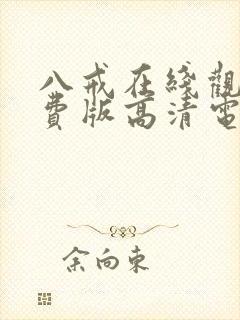 八戒在綫觀
費版高清電
余向東